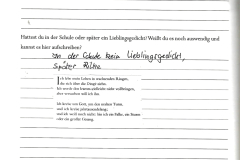 Hattest du in der Schule oder später ein Lieblingsgedicht? Weißt du es noch auswendig und
kannst es hier aufschreiben?
In der Schule kein Lieblingsgedicht,
später Rilke
Ich lebe mein Leben in wachsenden Ringen,
die sich über die Dinge ziehn.
Ich werde den letzten vielleicht nicht vollbringen,
aber versuchen will ich ihn.
Ich kreise um Gott, um den uralten Turm,
und ich kreise jahrtausendelang;
und ich weiß noch nicht: bin ich ein Falke, ein Sturm
oder ein großer Gesang.